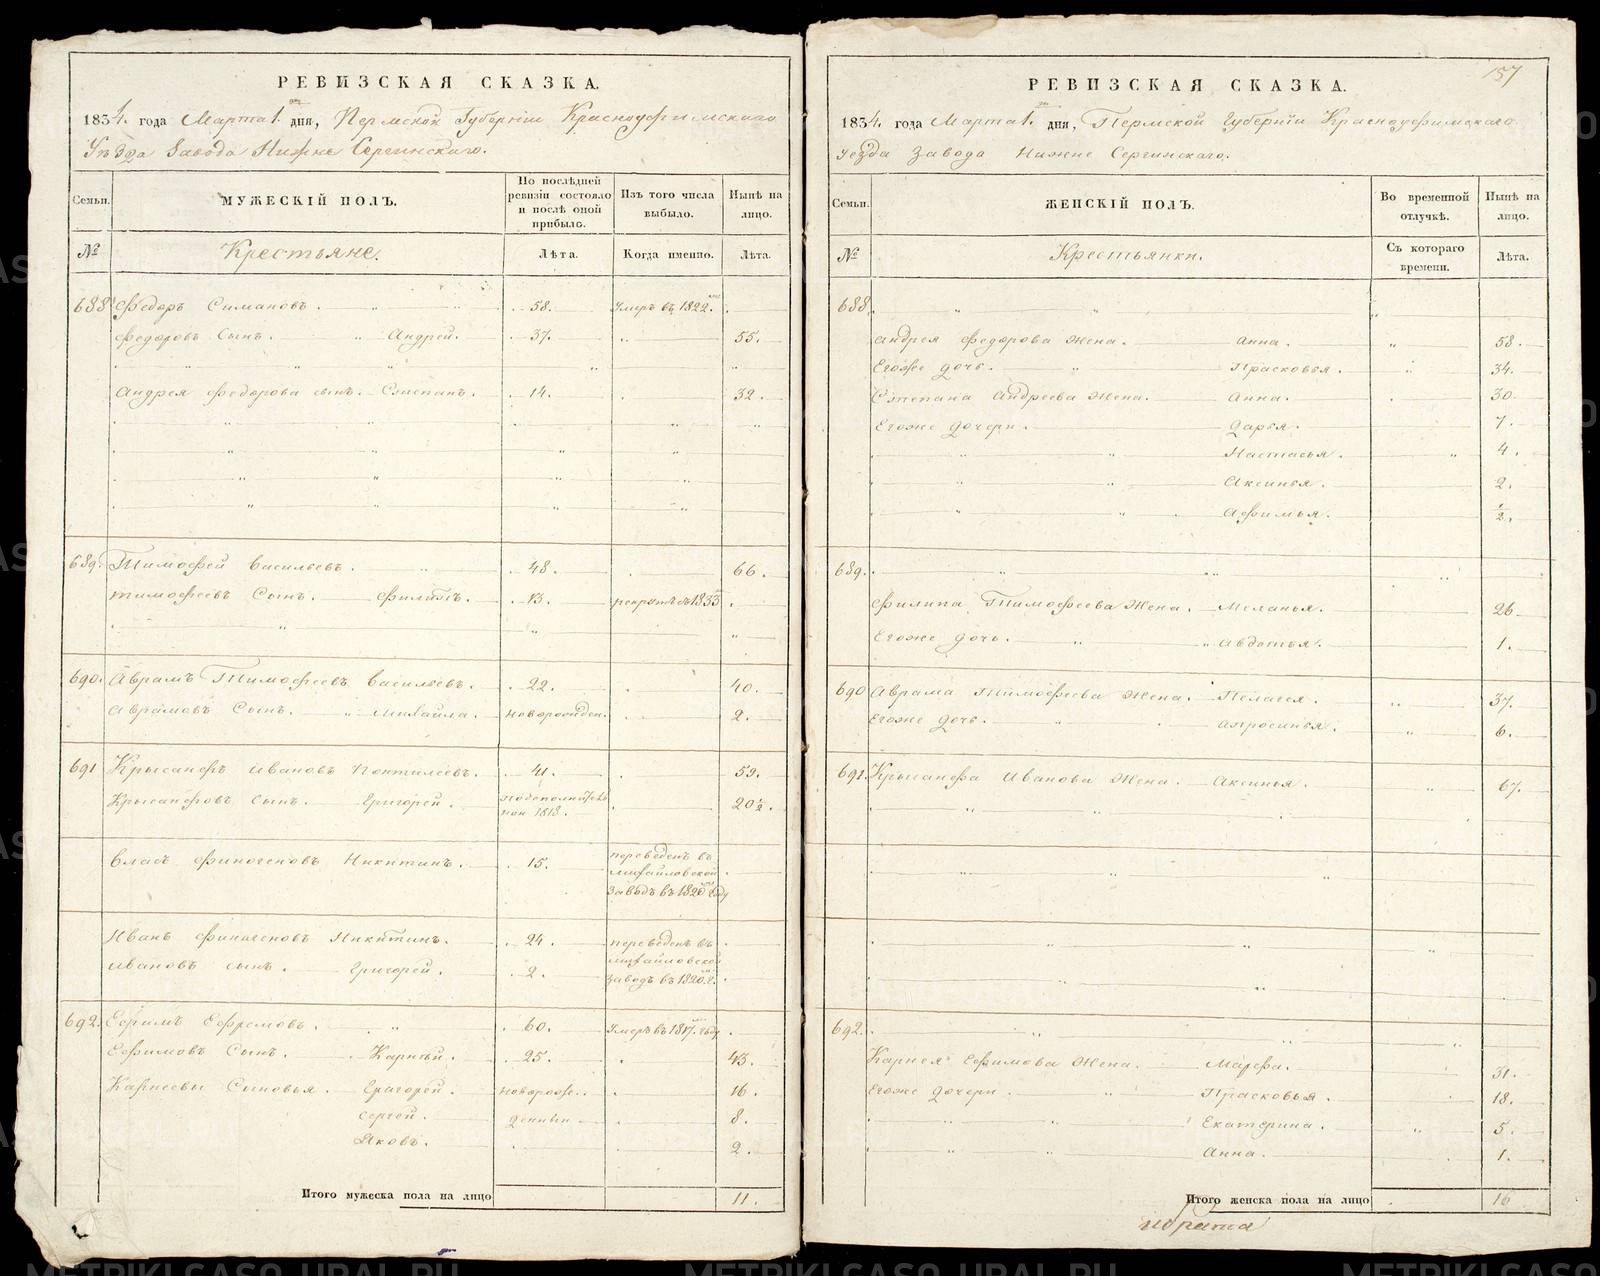 РЕВИЗСКАЯ СКАЗКА.
1834. года Марта 1. дня, Пермской Губернiи Красноуфимскаго
Уѣзда Завода Нижне Сергинскаго.
Семьи. МУЖЕСКIЙ ПОЛЪ. По послѣдней ревизiи состояло и послѣ оной прибыло. Изъ того числа выбыло. Нынѣ на лицо.
№ Крестьяне. Лѣта. Когда именно. Лѣта.
688 Федоръ Симановъ. 58. Умеръ въ 1822.
Федоровъ Сынъ. Андрей. 37. 55.
Андрея Федорова сынъ. Степанъ. 14. 32.
689. Тимофей Васильевъ. 48. 66.
Тимофеевъ Сынъ. Филипъ. 13. рекрутъ 1833
690. Аврамъ Тимофеевъ Васильевъ. 22. 40.
Аврамовъ Сынъ. Михайла. новорожден. 2.
691 Крысанфъ Ивановъ Понтилеевъ. 41. 59.
Крысанфовъ сынъ. Григорей. 1818. 20 1/2.
Власъ Финогеновъ Никитинъ. 15. переведенъ въ
Михайловской
заводъ въ 1820 году
Иванъ Финогеновъ Никитинъ. 24. переведенъ въ
Ивановъ сынъ. Григорей. 2. Михайловской
заводъ въ 1820. г.
692. Ефимъ Ефремовъ. 60. Умеръ въ 1817. году
Ефимовъ Сынъ. Карпей. 25. 43.
Карпеевы Сыновья. Григорей. новорож. 16.
Сергей. денныи 8.
Яковъ. 2.
Итого мужеска пола на лицо 11.
157
РЕВИЗСКАЯ СКАЗКА.
1834. года Марта 1. дня, Пермской Губернiи Красноуфимскаго
уезда Завода Нижне Сергинскаго.
Семьи. ЖЕНСКIЙ ПОЛЪ. Во временной отлучкѣ. Нынѣ на лицо.
№ Крестьянки. Съ котораго времени. Лѣта.
688.
Андрея Федорова Жена. Анна. 58.
Егоже дочь. Прасковья. 34.
Степана Андреева Жена. Анна. 30.
Егоже дочери. Дарья. 7.
Настасья. 4.
Аксинья. 2.
Афимья. 1/2.
689.
Филипа Тимофеева Жена. Меланья. 26
Егоже дочь. Авдотья. 1.
690 Аврама Тимофеева Жена. Пелагея. 37.
Егоже дочь. Апросинья. 6.
691. Крысанфа Иванова Жена. Аксинья. 67.
692.
Карпея Ефимова Жена. Марфа. 31.
Егоже дочери. Прасковья. 18.
Екатерина. 5.
Анна. 1.
Итого женска пола на лицо 16